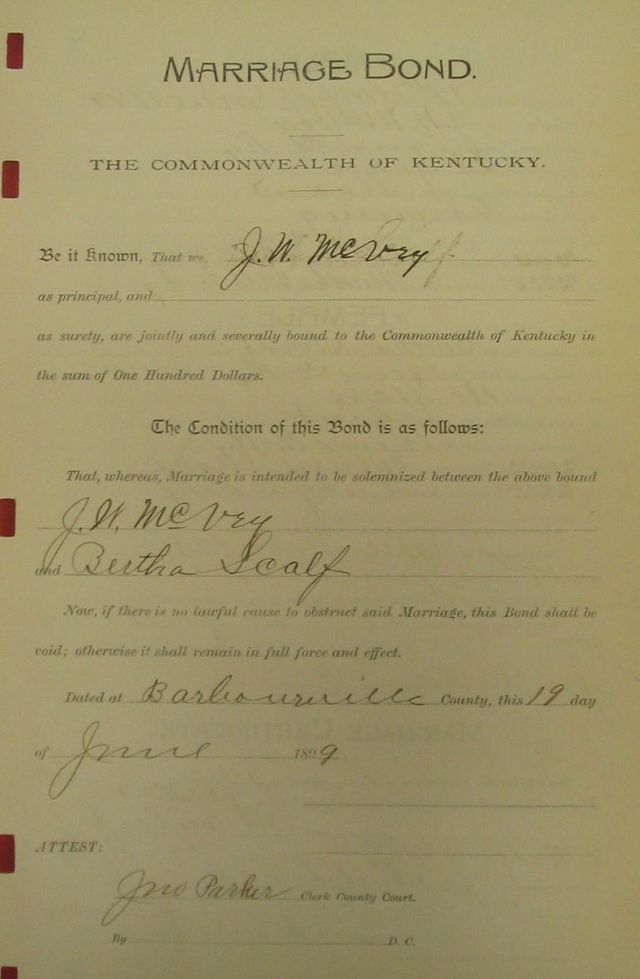 MARRIAGE BOND.
THE COMMONWEALTH OF KENTUCKY.
Be it Known, That we, J. W. McVey
as principal, and
as surety, are jointly and severally bound to the Commonwealth of Kentucky in
the sum of One Hundred Dollars.
The Condition of this Bond is as follows:
That, whereas, Marriage is intended to be solemnized between the above bound
J. W. McVey
and Bertha Scalf
Now, if there is no lawful cause to obstruct said Marriage, this Bond shall be
void; otherwise it shall remain in full force and effect.
Dated at Barbourville County, this 19 day
of June 1899
ATTEST:
Jno Parker Clerk County Court.
By D. C.